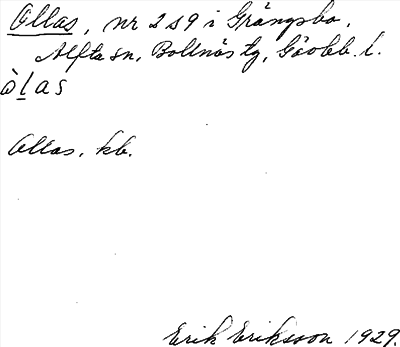 Ollas, nr 2 s9 i Grängsbo,
Alfta sn, Bollnäs tg, Gävleb. l.
òlas
Ollas, kb.
Erik Eriksson 1929.